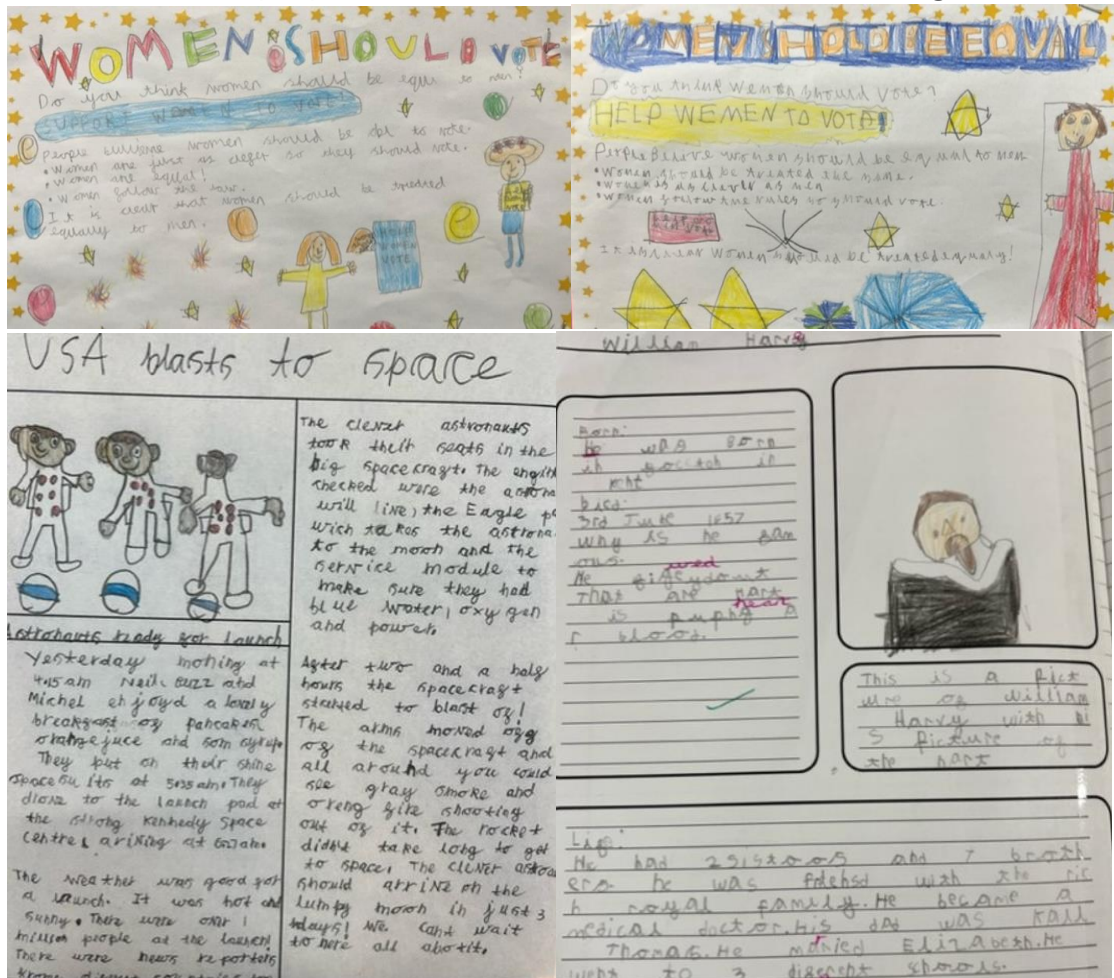 WOMEN SHOULD VOTE
Do you think women should be equ to men?
SUPPORT WOMEN TO VOTE!
People bullieve women should be abl to vote.
• Women are just as cleger so they should vote.
• Women are equal!
• Women follow the law.
It is clear that women should be treated
equally to men.
WOMEN
VOTE
WOMEN SHOLD BE EQUAL
Do you think wemen should vote?
HELP WEMEN TO VOTE!
People Believe women should be equal to men
• women should be treated the same.
• women is as cleverl as men
• women follow the rules so should vote.
It is clear women should be treated equaly!
USA blasts to space
Astronauts ready for launch
Yesterday morning at
4:15am Neil, Buzz and
Michel enjoyd a lovely
breakfast of pancakes,
orange juce and som syrup.
They put on their shine
spacesuits at 5:35am. They
drove to the launch pad at
the strong Kennedy Space
Centre, arriving at
The weather was good for
a launch. It was hot and
sunny. There were over 1
million people at the launch!
There were news reporters
The clever astronauts
took their seats in the
big spacecraft. The engin
checked were the astrona
will live, the Eagle
wich takes the astrona
to the moon and the
service module to
make sure they had
blue water, oxygen
and power.
After two and a half
hours the spacecraft
started to blast of!
The arms moved off
of the spacecraft and
all around you could
see gray smoke and
oreng fire shooting
out of it. The rocket
didnt take long to get
to space. The clever astro
should arrive on the
lumpy moon in just 3
days! We cant wait
to here all abotit.
William Harvy
Born:
he was born
in in
kent
Died:
3rd June 1657
why is he fam
ous.
He
wed
That are hart
hear
is pumping a
r blood.
This is a pict
ure of William
Harvy with hi
s picture of
the hart
Life:
He had 2 sistoos and 7 broth
ers he was frdehsd with the ric
h royal family. He became a
medical doctor. His dad was kall
Thomas. He married Elizabeth. He
went to 3 diferent shools.